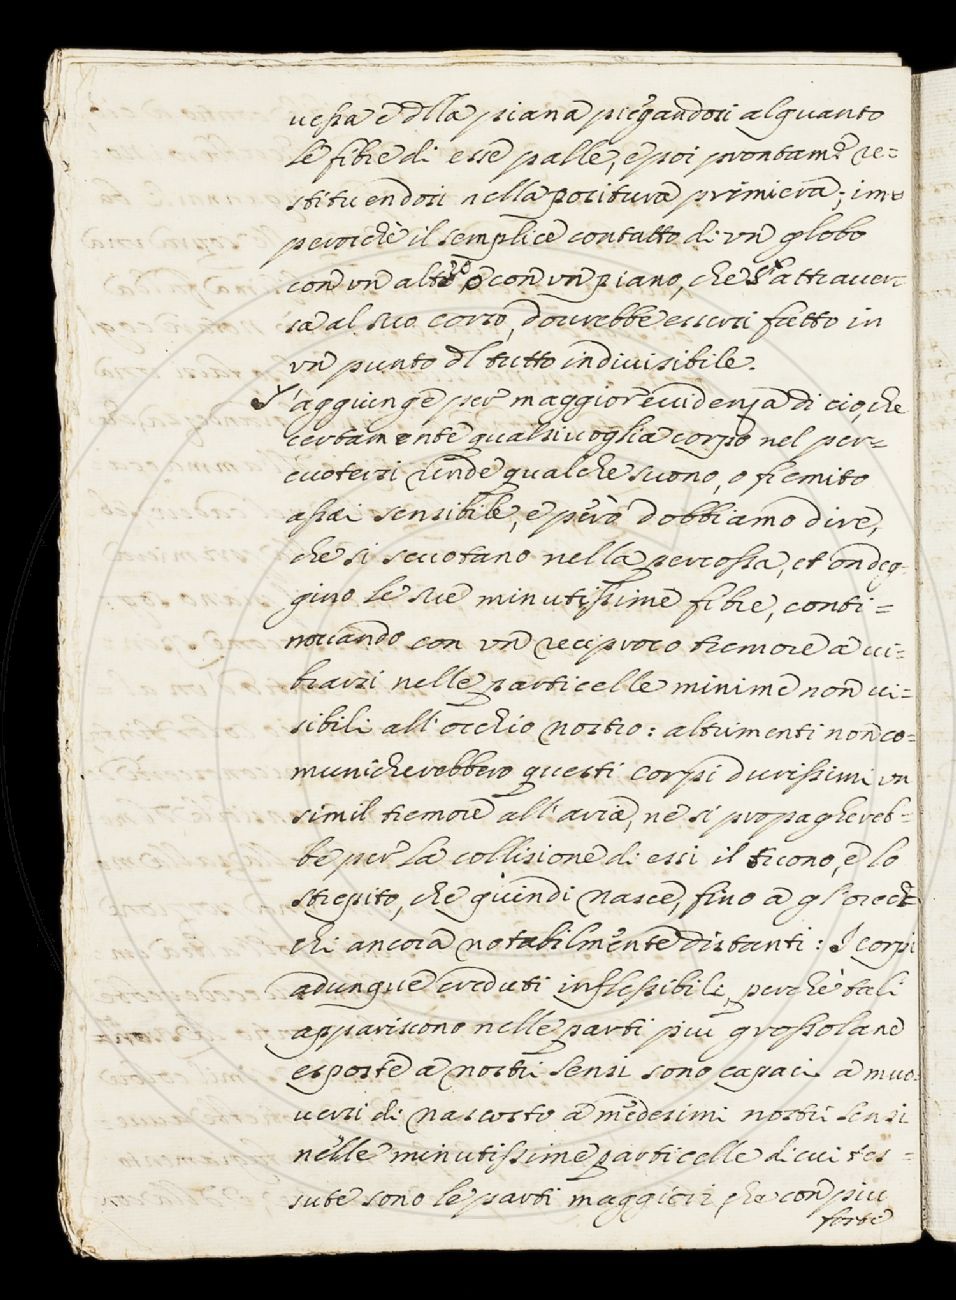 uessa e dlla piana piegandosi alquanto
le fibre di esse palle, e poi prontamte re=
stituendosi nella positura primiera; im=
perochè il semplice contatto di vn globo
con vn altro, o con vn piano, che s'attauer-
sa al suo corso, dourebbe essersi fatto in
vn punto dl tutto indiuisibile.
S'aggiunge per maggior euidenza di ciò, che
certamente qualsiuoglia corpo nel per=
cuotersi rende qualche suono, o fremito
assai sensibile, e però dobbiamo dire,
che si scuotano nella percossa, et ondeg-
gino le sue minutissime fibre, conti=
nouando con vn reciproco tremore a ui=
brarsi nelle particelle minime non ui=
sibili all'occhio nostro: altrimenti non co=
municherebbero questi corpi durissimi vn
simil tremore all'aria, ne si propaghereb=
be per la collisione di essi il suono, e lo
strepito, che quindi nasce, fino a gl'orecc
chi ancora notabilmente distanti: I corpi
adunque creduti inflessibili, perchè tali
appariscono nelle parti più grossolane
esposte a nostri sensi sono capaci a muo-
uersi di nascosto a medesimi nostri sensi
nelle minutissime particelle di cui tes=
sute sono le parti maggiori, che con piu
forte